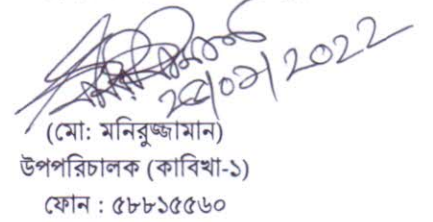 (মো: মনিরুজ্জামান)
উপপরিচালক (কাবিখা-১)
ফোন : ৫৮৮১৫৫৬০